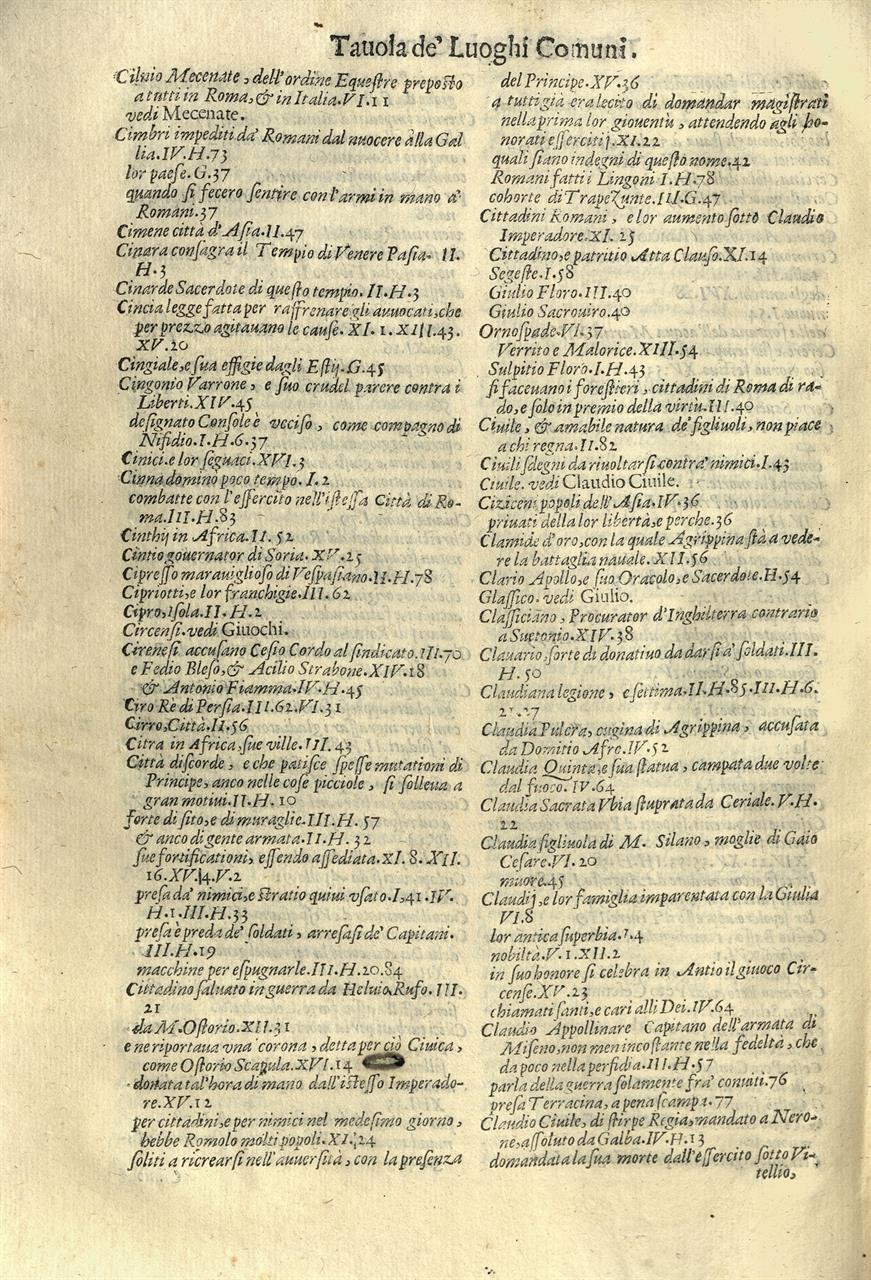 Tauola de' Luoghi Comuni.
Cilnio Mecenate, dell'ordine Equestre preposto
a tutti in Roma, & in Italia. VI. 11
vedi Mecenate.
Cimbri impediti da' Romani dal nuocere alla Gal
lia. IV. H. 73
lor paese. G. 37
quando si fecero sentire con l'armi in mano a'
Romani. 37
Cimene città d'Asia. II. 47
Cinara consagra il Tempio di Venere Pafia. II.
H. 3
Cinarde Sacerdote di questo tempio. II. H. 3
Cincia legge fatta per raffrenare gli auuocati, che
per prezzo agitauano le cause. XI. 1. XIII. 43.
XV. 20
Cingiale, e sua effigie dagli Estij. G. 45
Cingonio Varrone, e suo crudel parere contra i
Liberti. XIV. 45
designato Console è vcciso, come compagno di
Nifidio. I. H. 6. 37
Cinici. e lor seguaci. XVI. 3
Cinna domino poco tempo. I. 2
combatte con l'essercito nell'istessa Città di Ro-
ma. III. H. 83
Cinthij in Africa. II. 52
Cintio gouernator di Soria. XV. 25
Cipresso marauiglioso di Vespasiano. II. H. 78
Cipriotti, e lor franchigie. III. 62
Cipro, Isola. II. H. 2
Circensi. vedi Giuochi.
Cirenesi accusano Cesio Cordo al sindicato. III. 70
e Fedio Bleso, & Acilio Strabone. XIV. 18
& Antonio Fiamma. IV. H. 45
Ciro Rè di Persia. III. 62. VI. 31
Cirro, Città. II. 56
Citra in Africa, sue ville. III. 43
Città discorde, e che patisce spesse mutationi di
Principe, anco nelle cose picciole, si solleua a
gran motiui. II. H. 10
forte di sito, e di muraglie. III. H. 57
& anco di gente armata. II. H. 32
sue fortificationi, essendo assediata. XI. 8. XII.
16. XV. 4. V. 2
presa da' nimici, e stratio quiui vsato. I, 41. IV.
H. 1. III. H. 33
presa è preda de' soldati, arresasi de' Capitani.
III. H. 19
macchine per espugnarle. III. H. 20. 84
Cittadino saluato in guerra da Heluio Rufo. III.
21
da M. Ostorio. XII. 31
e ne riportaua vna corona, detta per ciò Ciuica,
come Ostorio Scapula. XVI. 14
donata tal'hora di mano dall'istesso Imperado-
re. XV. 12
per cittadini, e per nimici nel medesimo giorno,
hebbe Romolo molti popoli. XI. 24
soliti a ricrearsi nell'auuersità, con la presenza
del Principe. XV. 36
a tutti già era lecito di domandar magistrati
nella prima lor giouentù, attendendo agli ho-
norati essercitij. XI. 22
quali siano indegni di questo nome. 42
Romani fatti i Lingoni I. H. 78
cohorte di Trapezunte. III. G. 47
Cittadini Romani, e lor aumento sotto Claudio
Imperadore. XI. 25
Cittadino, e patritio Atta Clauso. XI. 14
Segeste. I. 58
Giulio Floro. III. 40
Giulio Sacrouiro. 40
Ornospade. VI. 37
Verrito e Malorice. XIII. 54
Sulpitio Floro. I. H. 43
si faceuano i forestieri, cittadini di Roma di ra-
do, e solo in premio della virtù. III. 40
Ciuile, & amabile natura de' figliuoli, non piace
a chi regna. II. 82
Ciuili sdegni da riuoltarsi contra' nimici. I. 43
Ciuile. vedi Claudio Ciuile.
Ciziceni popoli dell'Asia. IV. 36
priuati della lor libertà, e perche. 36
Clamide d'oro, con la quale Agrippina stà a vede-
re la battaglia nauale. XII. 56
Clario Apollo, e suo Oracolo, e Sacerdote. H. 54
Glassico. vedi Giulio.
Classiciano, Procurator d'Inghilterra contrario
a Suetonio. XIV. 38
Clauario, sorte di donatiuo da darsi a' soldati. III.
H. 50
Claudiana legione, e settima. II. H. 85. III. H. 6.
21. 27
Claudia Pulcra, cugina di Agrippina, accusata
da Domitio Afro. IV. 52
Claudia Quinta, e sua statua, campata due volte
dal fuoco. IV. 64
Claudia Sacrata Vbia stuprata da Ceriale. V. H.
22
Claudia figliuola di M. Silano, moglie di Gaio
Cesare. VI. 20
muore. 45
Claudij, e lor famiglia imparentata con la Giulia
VI. 8
lor antica superbia. I. 4
nobiltà. V. 1. XII. 2
in suo honore si celebra in Antio il giuoco Cir-
cense. XV. 23
chiamati santi, e cari alli Dei. IV. 64
Claudio Appollinare Capitano dell'armata di
Miseno, non men incostante nella fedeltà, che
da poco nella perfidia. III. H. 57
parla della guerra solamente fra' conuiti. 76
presa Terracina, a pena scampa. 77
Claudio Ciuile, di stirpe Regia, mandato a Nero-
ne, assoluto da Galba. IV. H. 13
domandata la sua morte dall'essercito sotto Vi-
tellio,